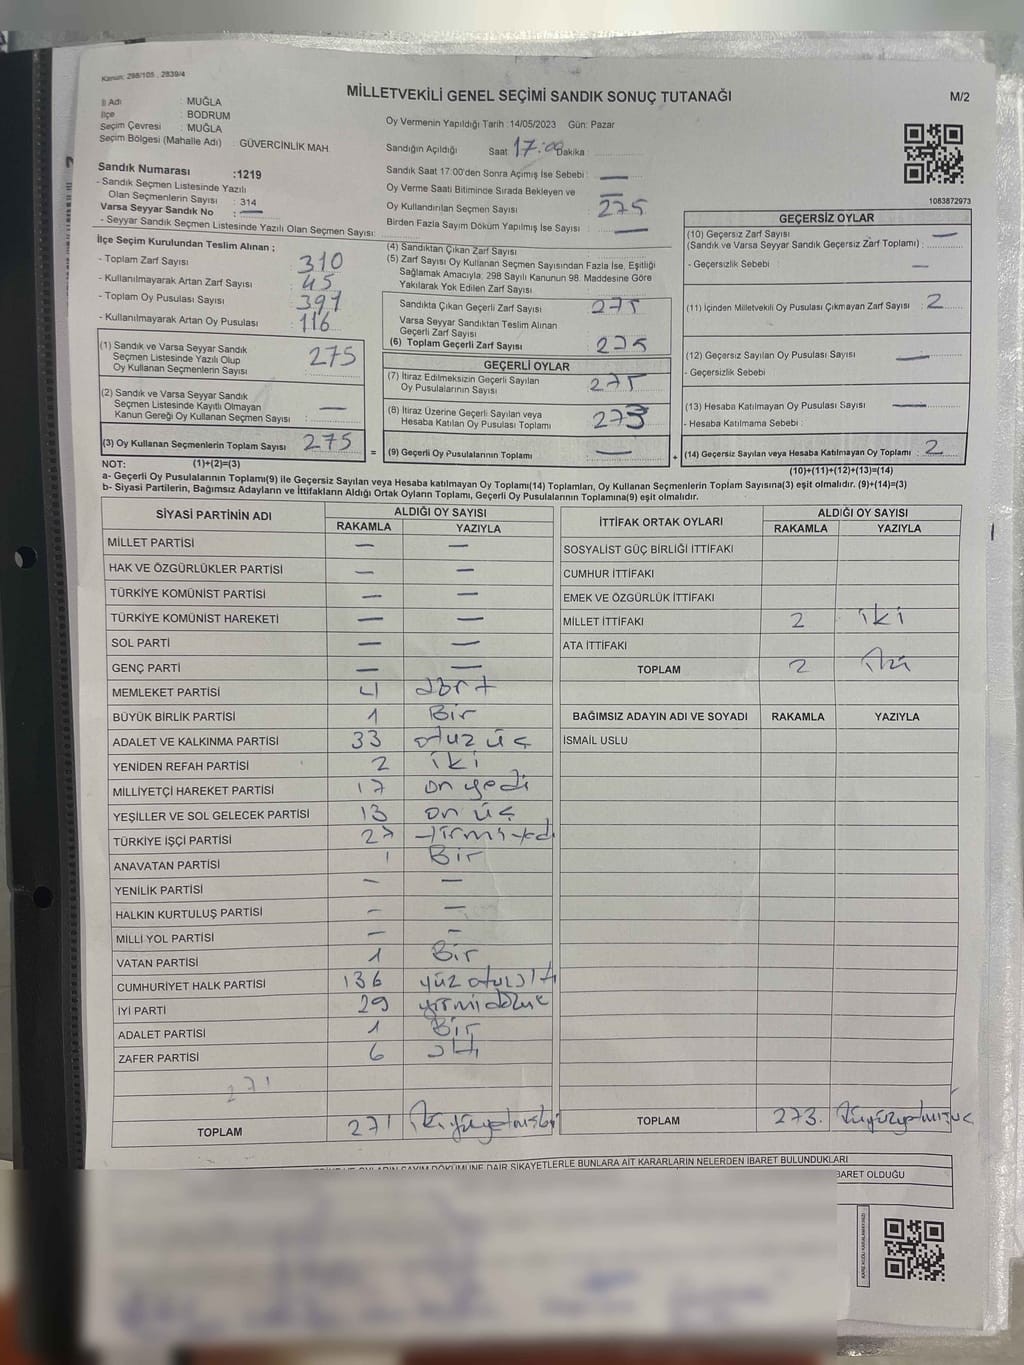 Kanun: 298/105 , 2839/4
MİLLETVEKİLİ GENEL SEÇİMİ SANDIK SONUÇ TUTANAĞI
M/2
İl Adı : MUĞLA
İlçe : BODRUM
Seçim Çevresi : MUĞLA
Seçim Bölgesi (Mahalle Adı) : GÜVERCİNLİK MAH.
Sandık Numarası :1219
- Sandık Seçmen Listesinde Yazılı
Olan Seçmenlerin Sayısı : 314
Varsa Seyyar Sandık No : —
- Seyyar Sandık Seçmen Listesinde Yazılı Olan Seçmen Sayısı:
Oy Vermenin Yapıldığı Tarih :14/05/2023 Gün: Pazar
Sandığın Açıldığı Saat 17:00 Dakika
Sandık Saat 17.00'den Sonra Açımış İse Sebebi : —
Oy Verme Saati Bitiminde Sırada Bekleyen ve —
Oy Kullandırılan Seçmen Sayısı : 275
Birden Fazla Sayım Döküm Yapılmış İse Sayısı : —
1083872973
İlçe Seçim Kurulundan Teslim Alınan ;
- Toplam Zarf Sayısı : 310
- Kullanılmayarak Artan Zarf Sayısı : 45
- Toplam Oy Pusulası Sayısı : 391
- Kullanılmayarak Artan Oy Pusulası : 116
(1) Sandık ve Varsa Seyyar Sandık
Seçmen Listesinde Yazılı Olup
Oy Kullanan Seçmenlerin Sayısı : 275
(2) Sandık ve Varsa Seyyar Sandık
Seçmen Listesinde Kayıtlı Olmayan
Kanun Gereği Oy Kullanan Seçmen Sayısı : —
(3) Oy Kullanan Seçmenlerin Toplam Sayısı : 275
(1)+(2)=(3)
(4) Sandıktan Çıkan Zarf Sayısı
(5) Zarf Sayısı Oy Kullanan Seçmen Sayısından Fazla İse, Eşitliği
Sağlamak Amacıyla; 298 Sayılı Kanunun 98. Maddesine Göre
Yakılarak Yok Edilen Zarf Sayısı
Sandıkta Çıkan Geçerli Zarf Sayısı : 275
Varsa Seyyar Sandıktan Teslim Alınan
Geçerli Zarf Sayısı
(6) Toplam Geçerli Zarf Sayısı : 275
GEÇERLİ OYLAR
(7) İtiraz Edilmeksizin Geçerli Sayılan
Oy Pusulalarının Sayısı : 275
(8) İtiraz Üzerine Geçerli Sayılan veya
Hesaba Katılan Oy Pusulası Toplamı : 273
= (9) Geçerli Oy Pusulalarının Toplamı : — +
GEÇERSİZ OYLAR
(10) Geçersiz Zarf Sayısı
(Sandık ve Varsa Seyyar Sandık Geçersiz Zarf Toplamı) : —
- Geçersizlik Sebebi : —
(11) İçinden Milletvekili Oy Pusulası Çıkmayan Zarf Sayısı : 2
(12) Geçersiz Sayılan Oy Pusulası Sayısı : —
- Geçersizlik Sebebi
(13) Hesaba Katılmayan Oy Pusulası Sayısı : —
- Hesaba Katılmama Sebebi :
(14) Geçersiz Sayılan veya Hesaba Katılmayan Oy Toplamı : 2
(10)+(11)+(12)+(13)=(14)
NOT:
a- Geçerli Oy Pusulalarının Toplamı(9) ile Geçersiz Sayılan veya Hesaba katılmayan Oy Toplamı(14) Toplamları, Oy Kullanan Seçmenlerin Toplam Sayısına(3) eşit olmalıdır. (9)+(14)=(3)
b- Siyasi Partilerin, Bağımsız Adayların ve İttifakların Aldığı Ortak Oyların Toplamı, Geçerli Oy Pusulalarının Toplamına(9) eşit olmalıdır.
SİYASİ PARTİNİN ADI ALDIĞI OY SAYISI
RAKAMLA YAZIYLA
MİLLET PARTİSİ — —
HAK VE ÖZGÜRLÜKLER PARTİSİ — —
TÜRKİYE KOMÜNİST PARTİSİ — —
TÜRKİYE KOMÜNİST HAREKETİ — —
SOL PARTİ — —
GENÇ PARTİ — —
MEMLEKET PARTİSİ 4 dört
BÜYÜK BİRLİK PARTİSİ 1 Bir
ADALET VE KALKINMA PARTİSİ 33 otuz üç
YENİDEN REFAH PARTİSİ 2 iki
MİLLİYETÇİ HAREKET PARTİSİ 17 on yedi
YEŞİLLER VE SOL GELECEK PARTİSİ 13 on üç
TÜRKİYE İŞÇİ PARTİSİ 27
ANAVATAN PARTİSİ 1 Bir
YENİLİK PARTİSİ — —
HALKIN KURTULUŞ PARTİSİ — —
MİLLİ YOL PARTİSİ — —
VATAN PARTİSİ 1 Bir
CUMHURİYET HALK PARTİSİ 136 yüz otuz altı
İYİ PARTİ 29 yirmi dokuz
ADALET PARTİSİ 1 Bir
ZAFER PARTİSİ 6 altı
271
TOPLAM 271
İTTİFAK ORTAK OYLARI ALDIĞI OY SAYISI
RAKAMLA YAZIYLA
SOSYALİST GÜÇ BİRLİĞİ İTTİFAKI
CUMHUR İTTİFAKI
EMEK VE ÖZGÜRLÜK İTTİFAKI
MİLLET İTTİFAKI 2 iki
ATA İTTİFAKI
TOPLAM 2 iki
BAĞIMSIZ ADAYIN ADI VE SOYADI RAKAMLA YAZIYLA
İSMAİL USLU
TOPLAM 273.
SAYIM DÖKÜMÜNE DAİR ŞİKAYETLERLE BUNLARA AİT KARARLARIN NELERDEN İBARET BULUNDUKLARI
BARET OLDUĞU